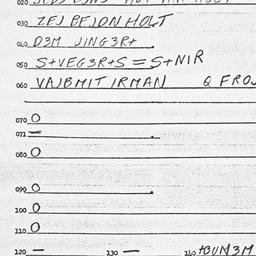 030 ZEJ BFJDN HOLT
040 D3M JING3R+
050 S+VEG3R+S = S+NIR
060 VAJBMIT IRMAN Q FROJ
070 O
071 =
080 O
090 O
100 O
110 O
120 — 130 — 140 +BUN3M